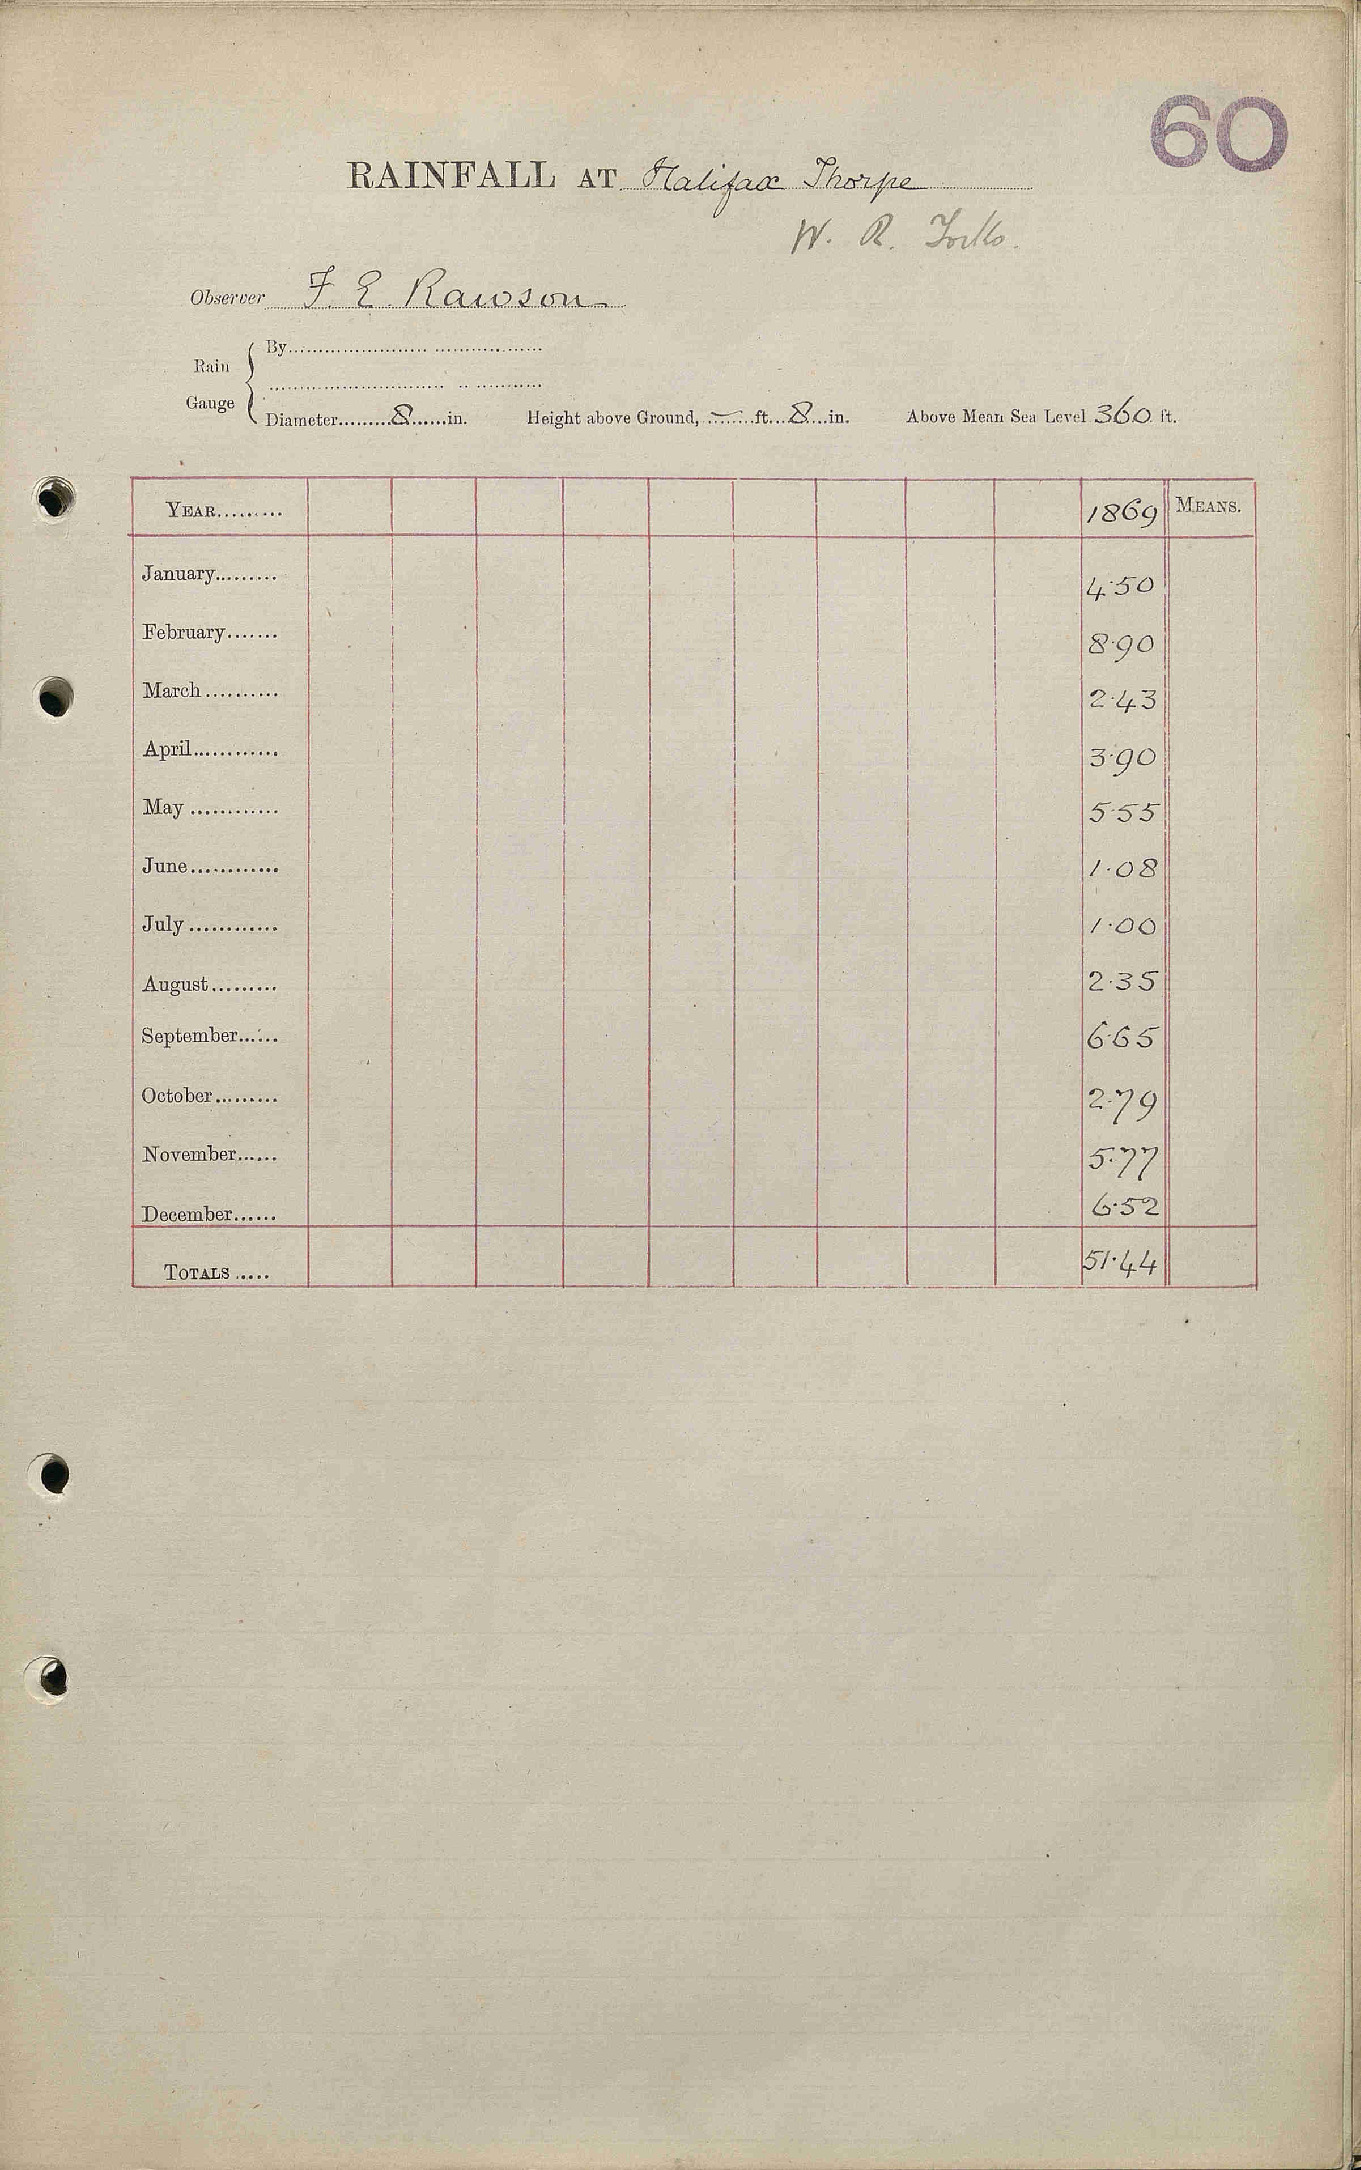 60
RAINFALL AT Halifax Thorpe
W. R. Yorks.
Observer F. E. Rawson
Rain Gauge
By
Diameter 8 in. Height above Ground, — ft. 8 in. Above Mean Sea Level 360 ft.
YEAR 1869 MEANS.
January 4.50
February 8.90
March 2.43
April 3.90
May 5.55
June 1.08
July 1.00
August 2.35
September 6.65
October 2.79
November 5.77
December 6.52
TOTALS 51.44